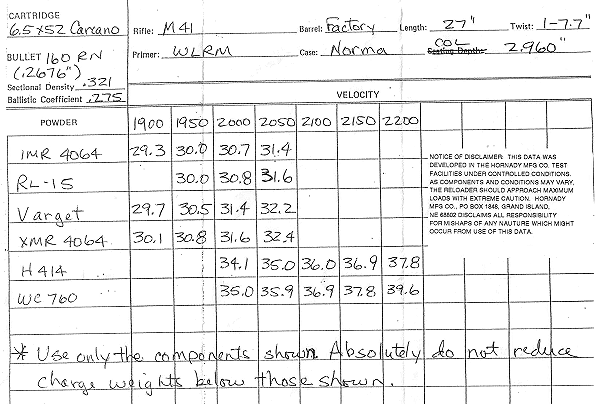 CARTRIDGE
6.5x52 Carcano
Rifle: M41 Barrel: Factory Length: 27" Twist: 1-7.7"
BULLET 160 RN
(.2676")
Primer: WLRM Case: Norma COL Seating Depth: 2.960"
Sectional Density .321
Ballistic Coefficient .275
VELOCITY
POWDER 1900 1950 2000 2050 2100 2150 2200
IMR 4064 29.3 30.0 30.7 31.4
RL-15 30.0 30.8 31.6
Varget 29.7 30.5 31.4 32.2
XMR 4064 30.1 30.8 31.6 32.4
H414 34.1 35.0 36.0 36.9 37.8
WC 760 35.0 35.9 36.9 37.8 39.6
NOTICE OF DISCLAIMER: THIS DATA WAS
DEVELOPED IN THE HORNADY MFG CO. TEST
FACILITIES UNDER CONTROLLED CONDITIONS.
AS COMPONENTS AND CONDITIONS MAY VARY,
THE RELOADER SHOULD APPROACH MAXIMUM
LOADS WITH EXTREME CAUTION. HORNADY
MFG CO., PO BOX 1848, GRAND ISLAND,
NE 68802 DISCLAIMS ALL RESPONSIBILITY
FOR MISHAPS OF ANY NAUTURE WHICH MIGHT
OCCUR FROM USE OF THIS DATA.
* Use only the components shown. Absolutely do not reduce
charge weights below those shown.